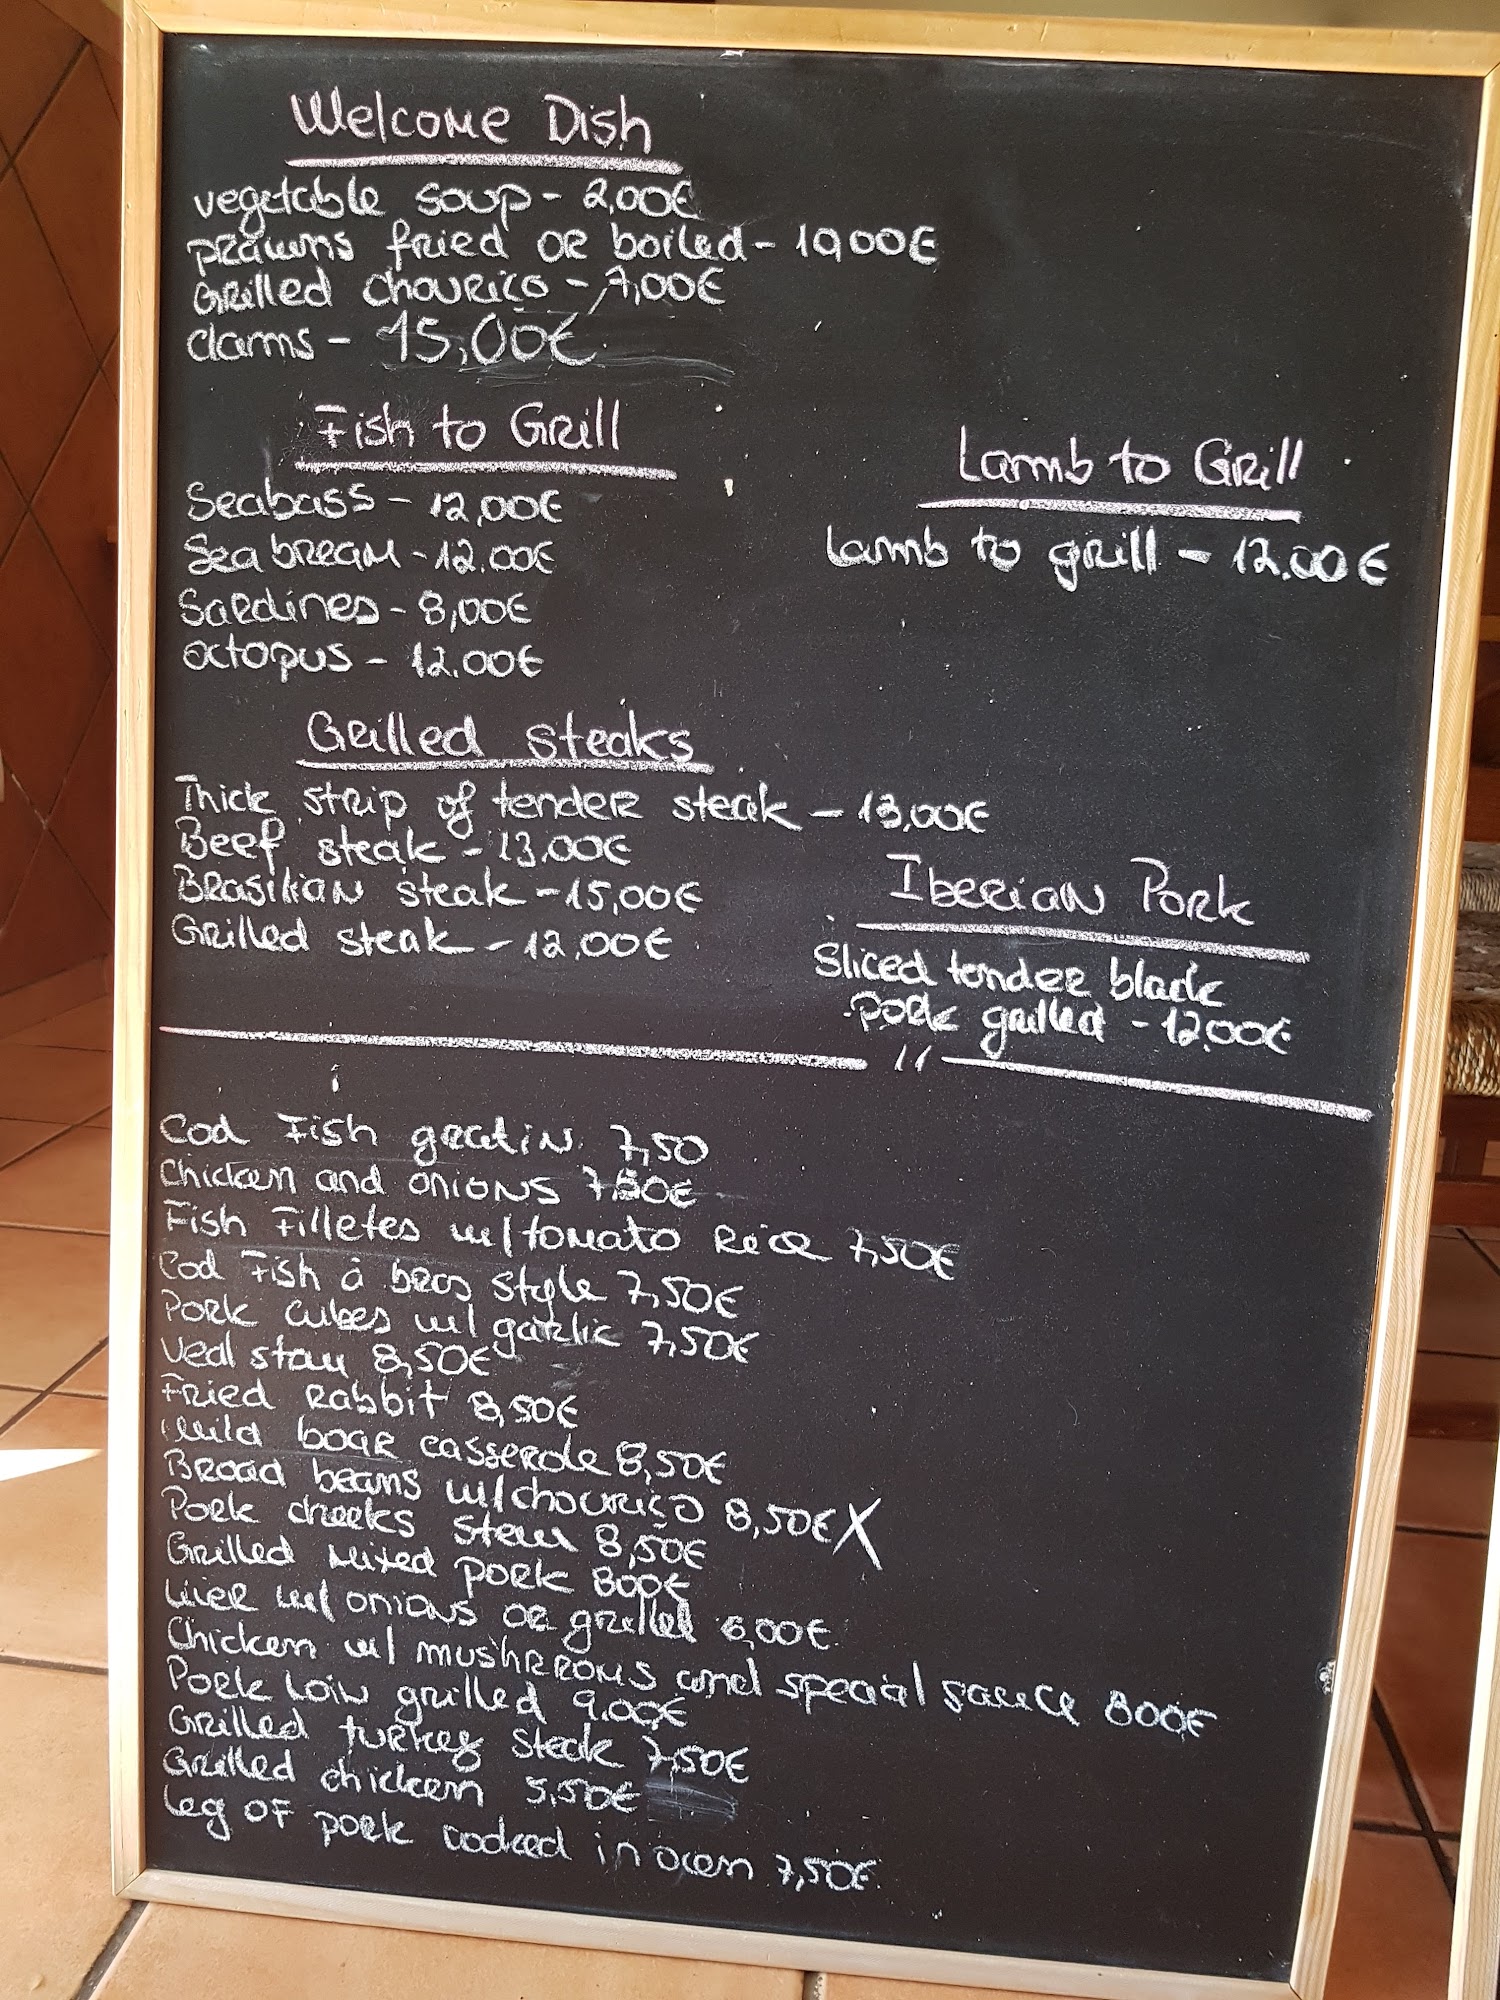 Welcome Dish
vegetable soup - 2,00€
prawns fried or boiled - 10,00€
Grilled chouriço - 7,00€
clams - 15,00€
Fish to Grill
Seabass - 12,00€
Sea bream - 12.00€
Sardines - 8,00€
octopus - 12.00€
Lamb to Grill
Lamb to grill - 12.00€
Grilled steaks
Thick strip of tender steak - 13,00€
Beef steak - 13,00€
Brasilian steak - 15,00€
Grilled steak - 12,00€
Iberian Pork
Sliced tender black
pork grilled - 12.00€
Cod Fish gratin. 7,50
Chicken and onions 7,50€
Fish Filletes w/ tomato Rice 7,50€
Cod Fish à bras style 7,50€
Pork cubes w/ garlic 7,50€
Veal stew 8,50€
Fried Rabbit 8,50€
Wild boar casserole 8,50€
Broad beans w/ chouriço 8,50€ X
Pork cheeks stew 8,50€
Grilled Mixed pork 800€
Liver w/ onions or grilled 6,00€
Chicken w/ mushrroms and special sauce 800€
Pork Loin grilled 9.00€
Grilled turkey steak 7,50€
Grilled chicken 5,50€
Leg of pork cooked in oven 7,50€